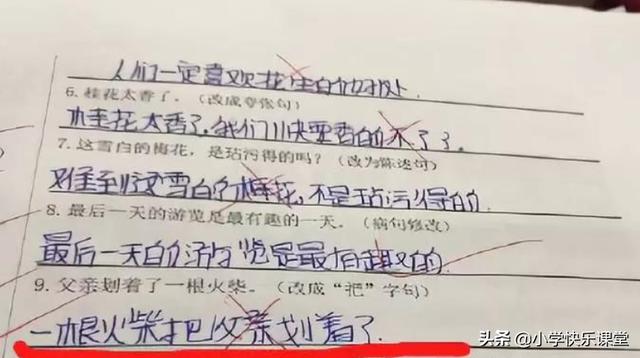 人们一定喜欢花生的好处.
6. 桂花太香了。(改成夸张句)
桂花太香了,我们快要香的不了了.
7. 这雪白的梅花,是玷污得的吗?(改为陈述句)
雪白的梅花,不是玷污得的.
8. 最后一天的游览是最有趣的一天。(病句修改)
最后一天的游览是最有趣的.
9. 父亲划着了一根火柴。(改成“把”字句)
一根火柴把父亲划着了.
头条 @小学快乐课堂